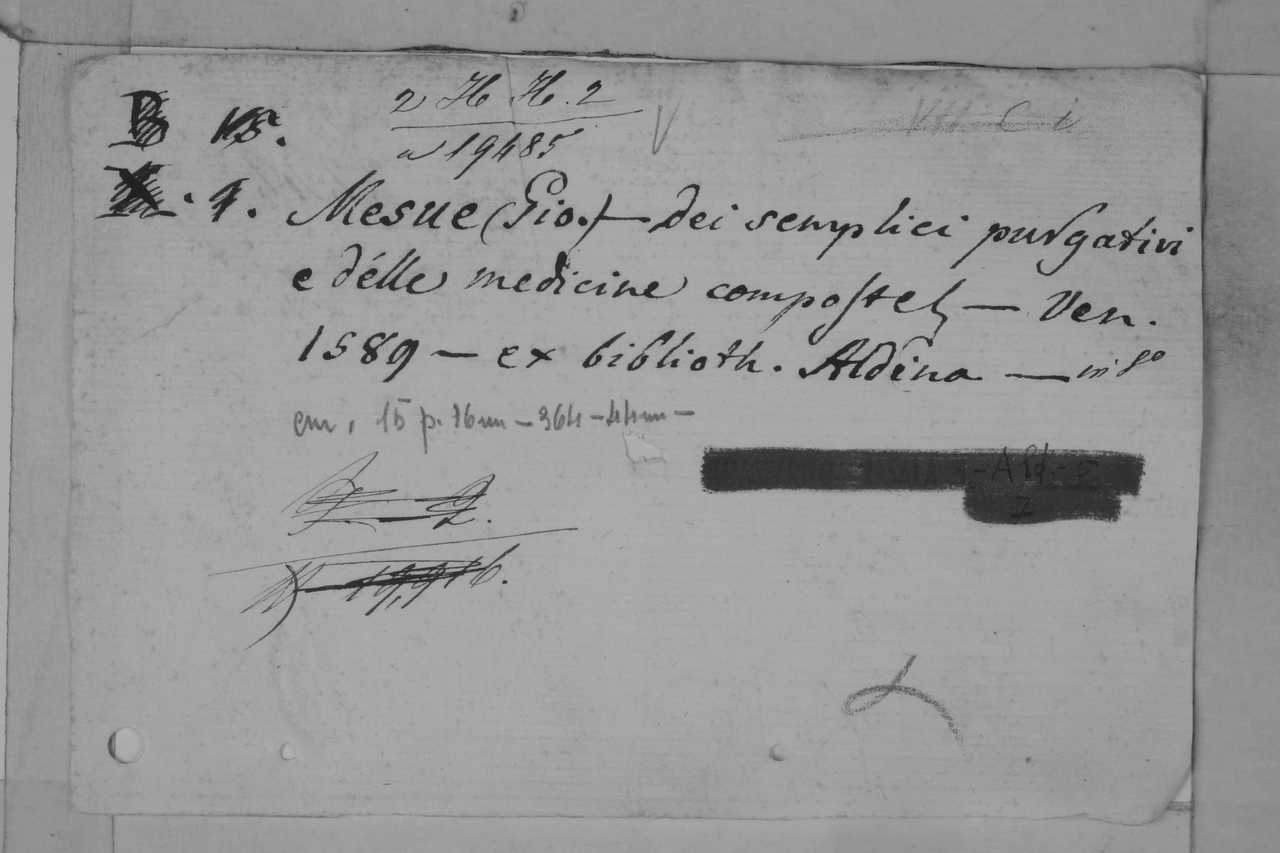 B 15.
2 H H. 2
a 19485
X. 4. Mesue (Gio.) — dei semplici purgativi
e délle medicine composte, — Ven.
1589 — ex biblioth. Aldina — in 8º
cm. 15 p. 16nn — 364 — 44nn —
Ald. 5
19,916.